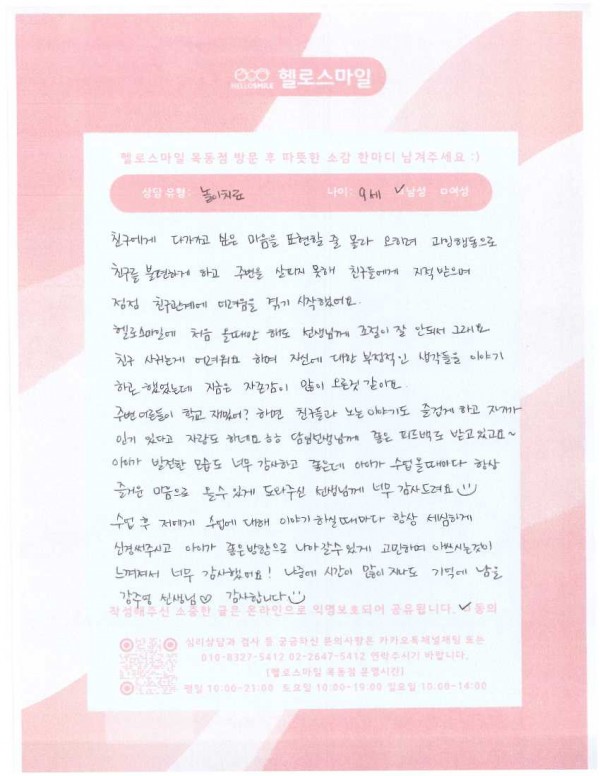 HELLOSMILE 헬로스마일
헬로스마일 목동점 방문 후 따뜻한 소감 한마디 남겨주세요 :)
상담 유형: 놀이치료 나이: 9세 ✓남성 □여성
친구에게 다가가고 싶은 마음을 표현할 줄 몰라 오히려 과잉행동으로
친구를 불편하게 하고 주변을 살피지 못해 친구들에게 지적 받으며
점점 친구관계에 어려움을 겪기 시작했어요.
헬로스마일에 처음 올때만 해도 선생님께 조절이 잘 안되서 그래요
친구 사귀는게 어려워요 하며 자신에 대한 부정적인 생각들을 이야기
하곤 했었는데 지금은 자존감이 많이 오른것 같아요.
주변 어른들이 학교 재밌어? 하면 친구들과 노는 이야기도 즐겁게 하고 자기가
인기 있다고 자랑도 하네요 ㅎㅎ 담임선생님께 좋은 피드백도 받고있고요~
아이가 발전한 모습도 너무 감사하고 좋은데 아이가 수업올때마다 항상
즐거운 마음으로 올수 있게 도와주신 선생님께 너무 감사드려요
수업 후 저에게 수업에 대해 이야기 하실때마다 항상 세심하게
신경써주시고 아이가 좋은방향으로 나아갈수있게 고민하며 애쓰시는것이
느껴져서 너무 감사했어요! 나중에 시간이 많이 지나도 기억에 남을
강주영 선생님♡ 감사합니다
작성해주신 소중한 글은 온라인으로 익명보호되어 공유됩니다. ✓동의
심리상담과 검사 등 궁금하신 문의사항은 카카오톡채널채팅 또는
010-8327-5412 02-2647-5412 연락주시기 바랍니다.
[헬로스마일 목동점 운영시간]
평일 10:00-21:00 토요일 10:00-19:00 일요일 10:00-14:00